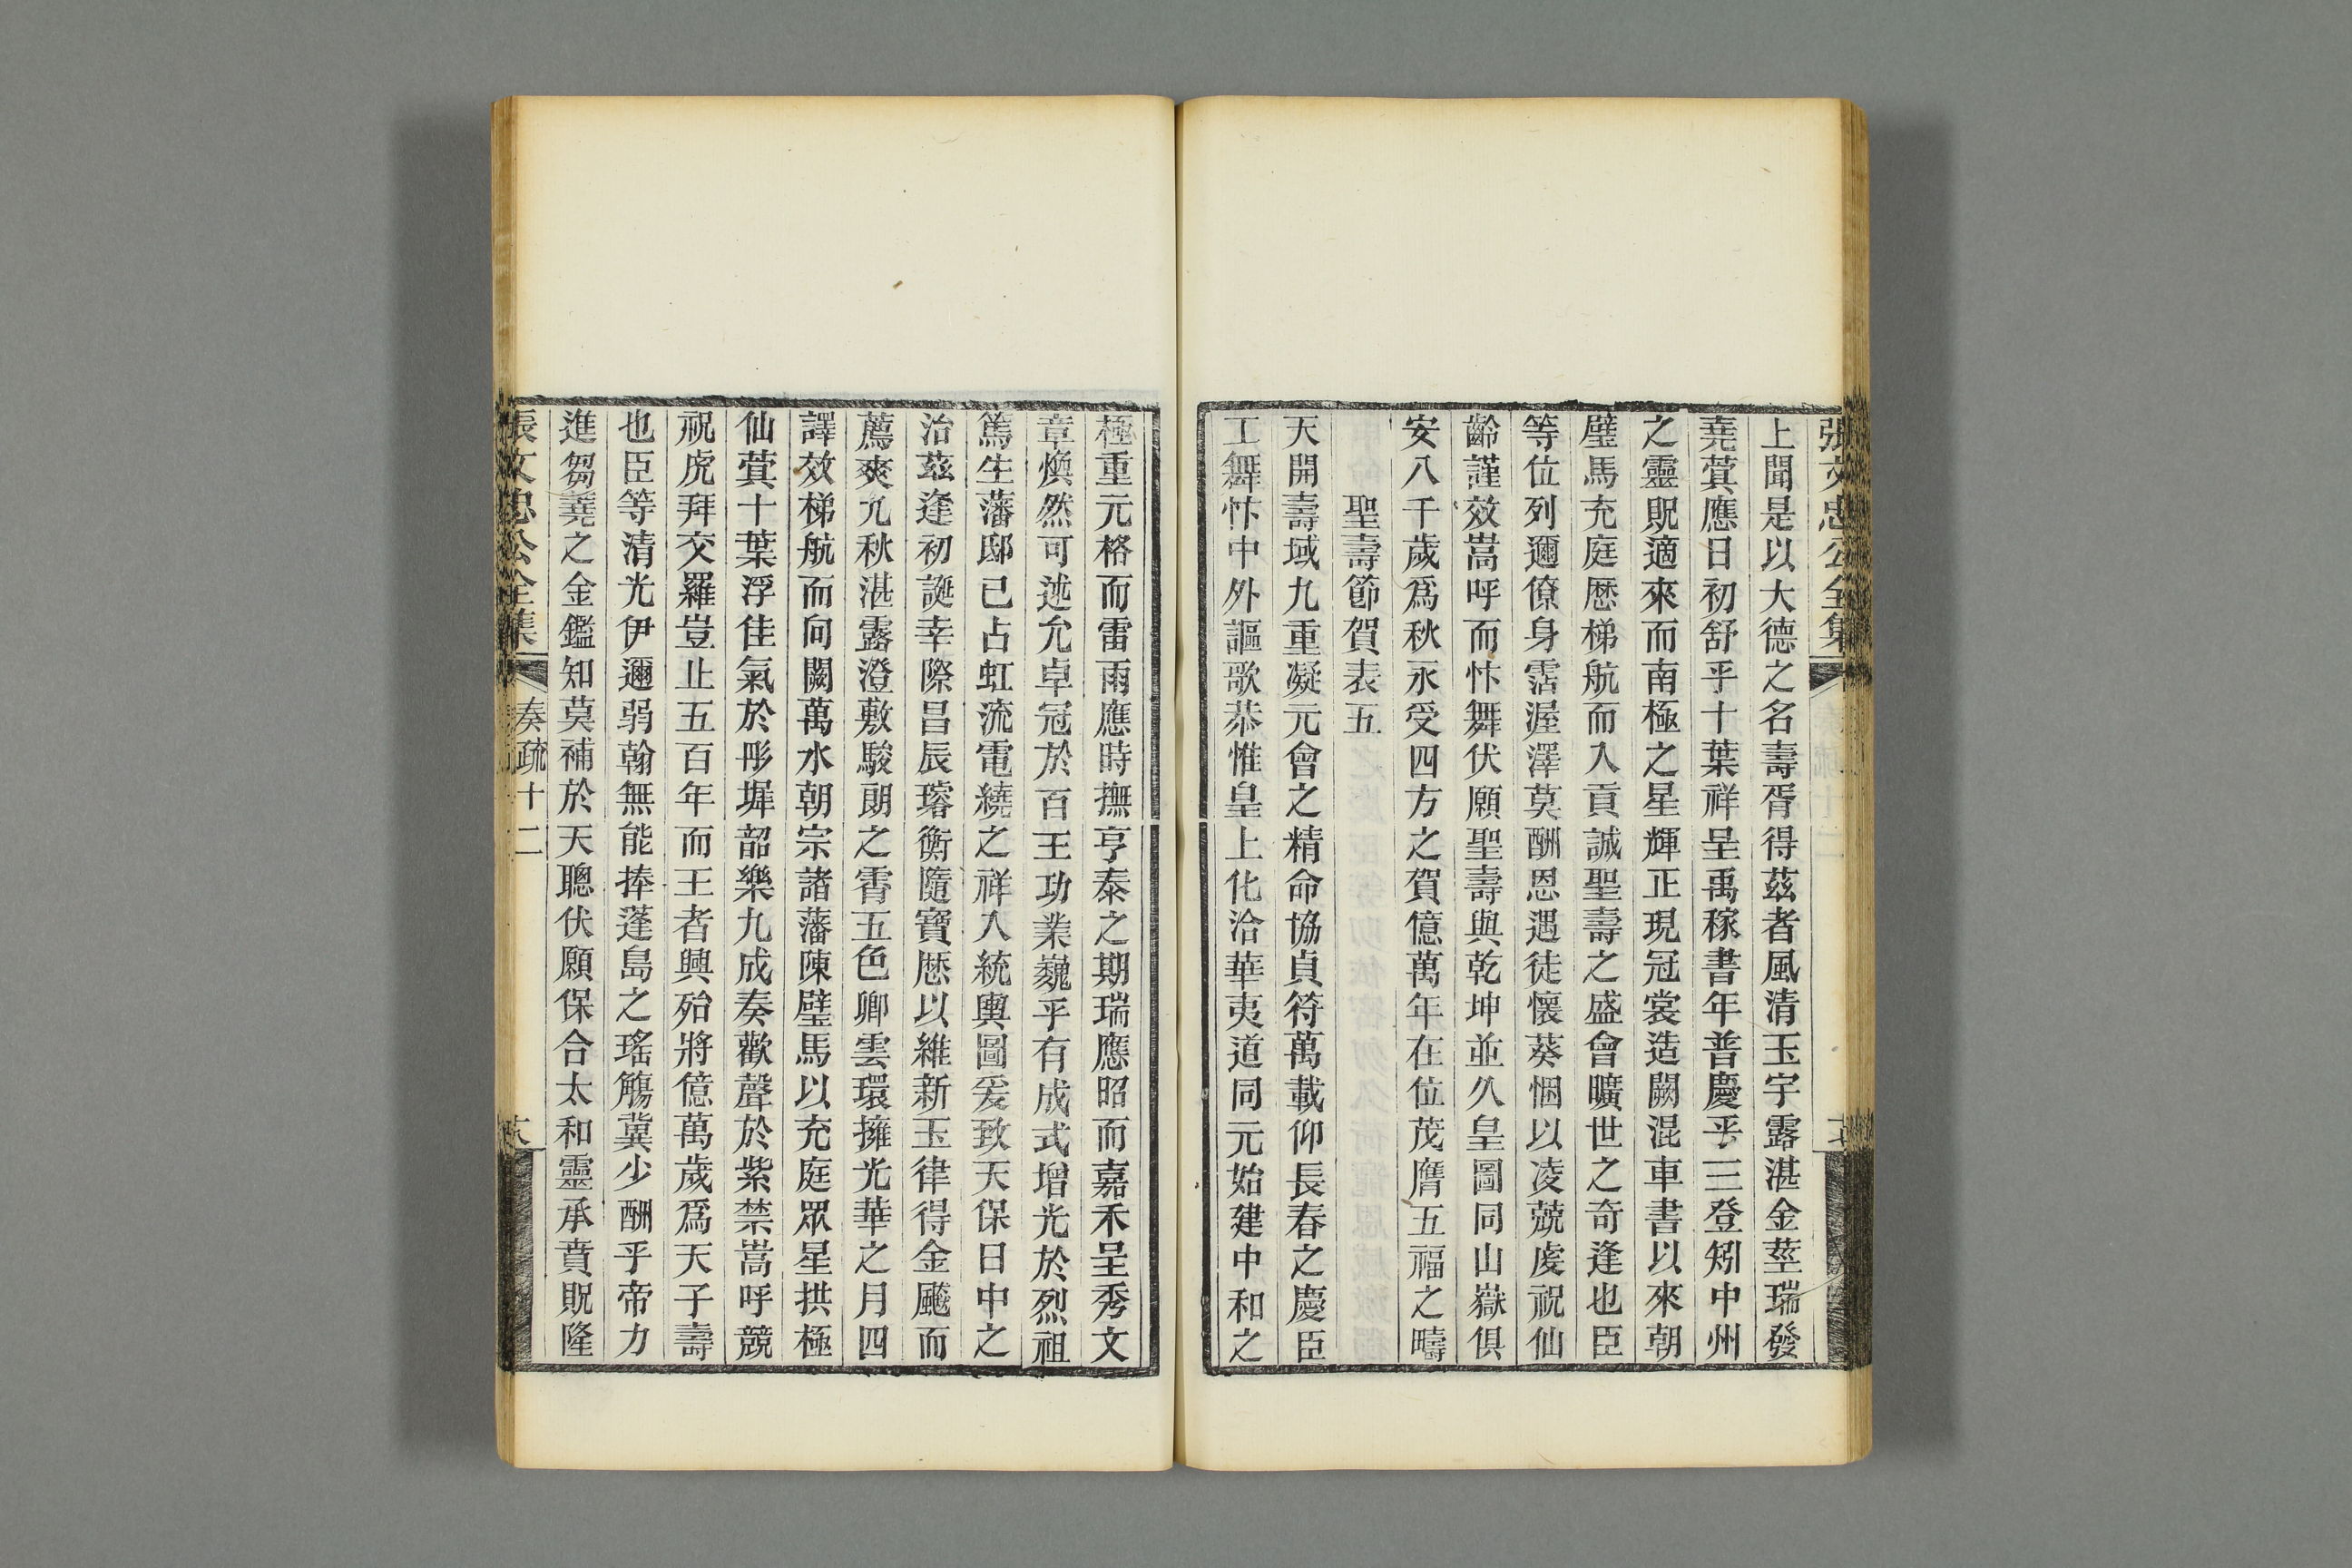 張文忠公全集
上聞是以大德之名壽胥得茲者風清玉宇露湛金莖瑞發
堯蓂應日初舒乎十葉祥呈禹稼書年普慶乎三登矧中州
之靈貺適來而南極之星輝正現冠裳造闕混車書以來朝
璧馬充庭歷梯航而入貢誠聖壽之盛會曠世之奇逢也臣
等位列邇僚身霑渥澤莫酬恩遇徒懷葵悃以凌兢虔祝仙
齡謹效嵩呼而忭舞伏願聖壽與乾坤並久皇圖同山嶽俱
安八千歲爲秋永受四方之賀億萬年在位茂膺五福之疇
聖壽節賀表五
天開壽域九重凝元會之精命協貞符萬載仰長春之慶臣
工舞忭中外謳歌恭惟皇上化洽華夷道同元始建中和之
極重元格而雷雨應時撫亨泰之期瑞應昭而嘉禾呈秀文
章煥然可述允卓冠於百王功業巍乎有成式增光於烈祖
篤生藩邸已占虹流電繞之祥入統輿圖爰致天保日中之
治茲逢初誕幸際昌辰璿衡隨寶歷以維新玉律得金飈而
薦爽九秋湛露澄敷駿朗之霄五色卿雲環擁光華之月四
譯效梯航而向闕萬水朝宗諸藩陳璧馬以充庭眾星拱極
仙蓂十葉浮佳氣於彤墀韶樂九成奏歡聲於紫禁嵩呼競
祝虎拜交羅豈止五百年而王者興殆將億萬歲爲天子壽
也臣等清光伊邇弱翰無能捧蓬島之瑤觴冀少酬乎帝力
進芻蕘之金鑑知莫補於天聰伏願保合太和靈承賁貺隆
張文忠公全集
奏疏十二